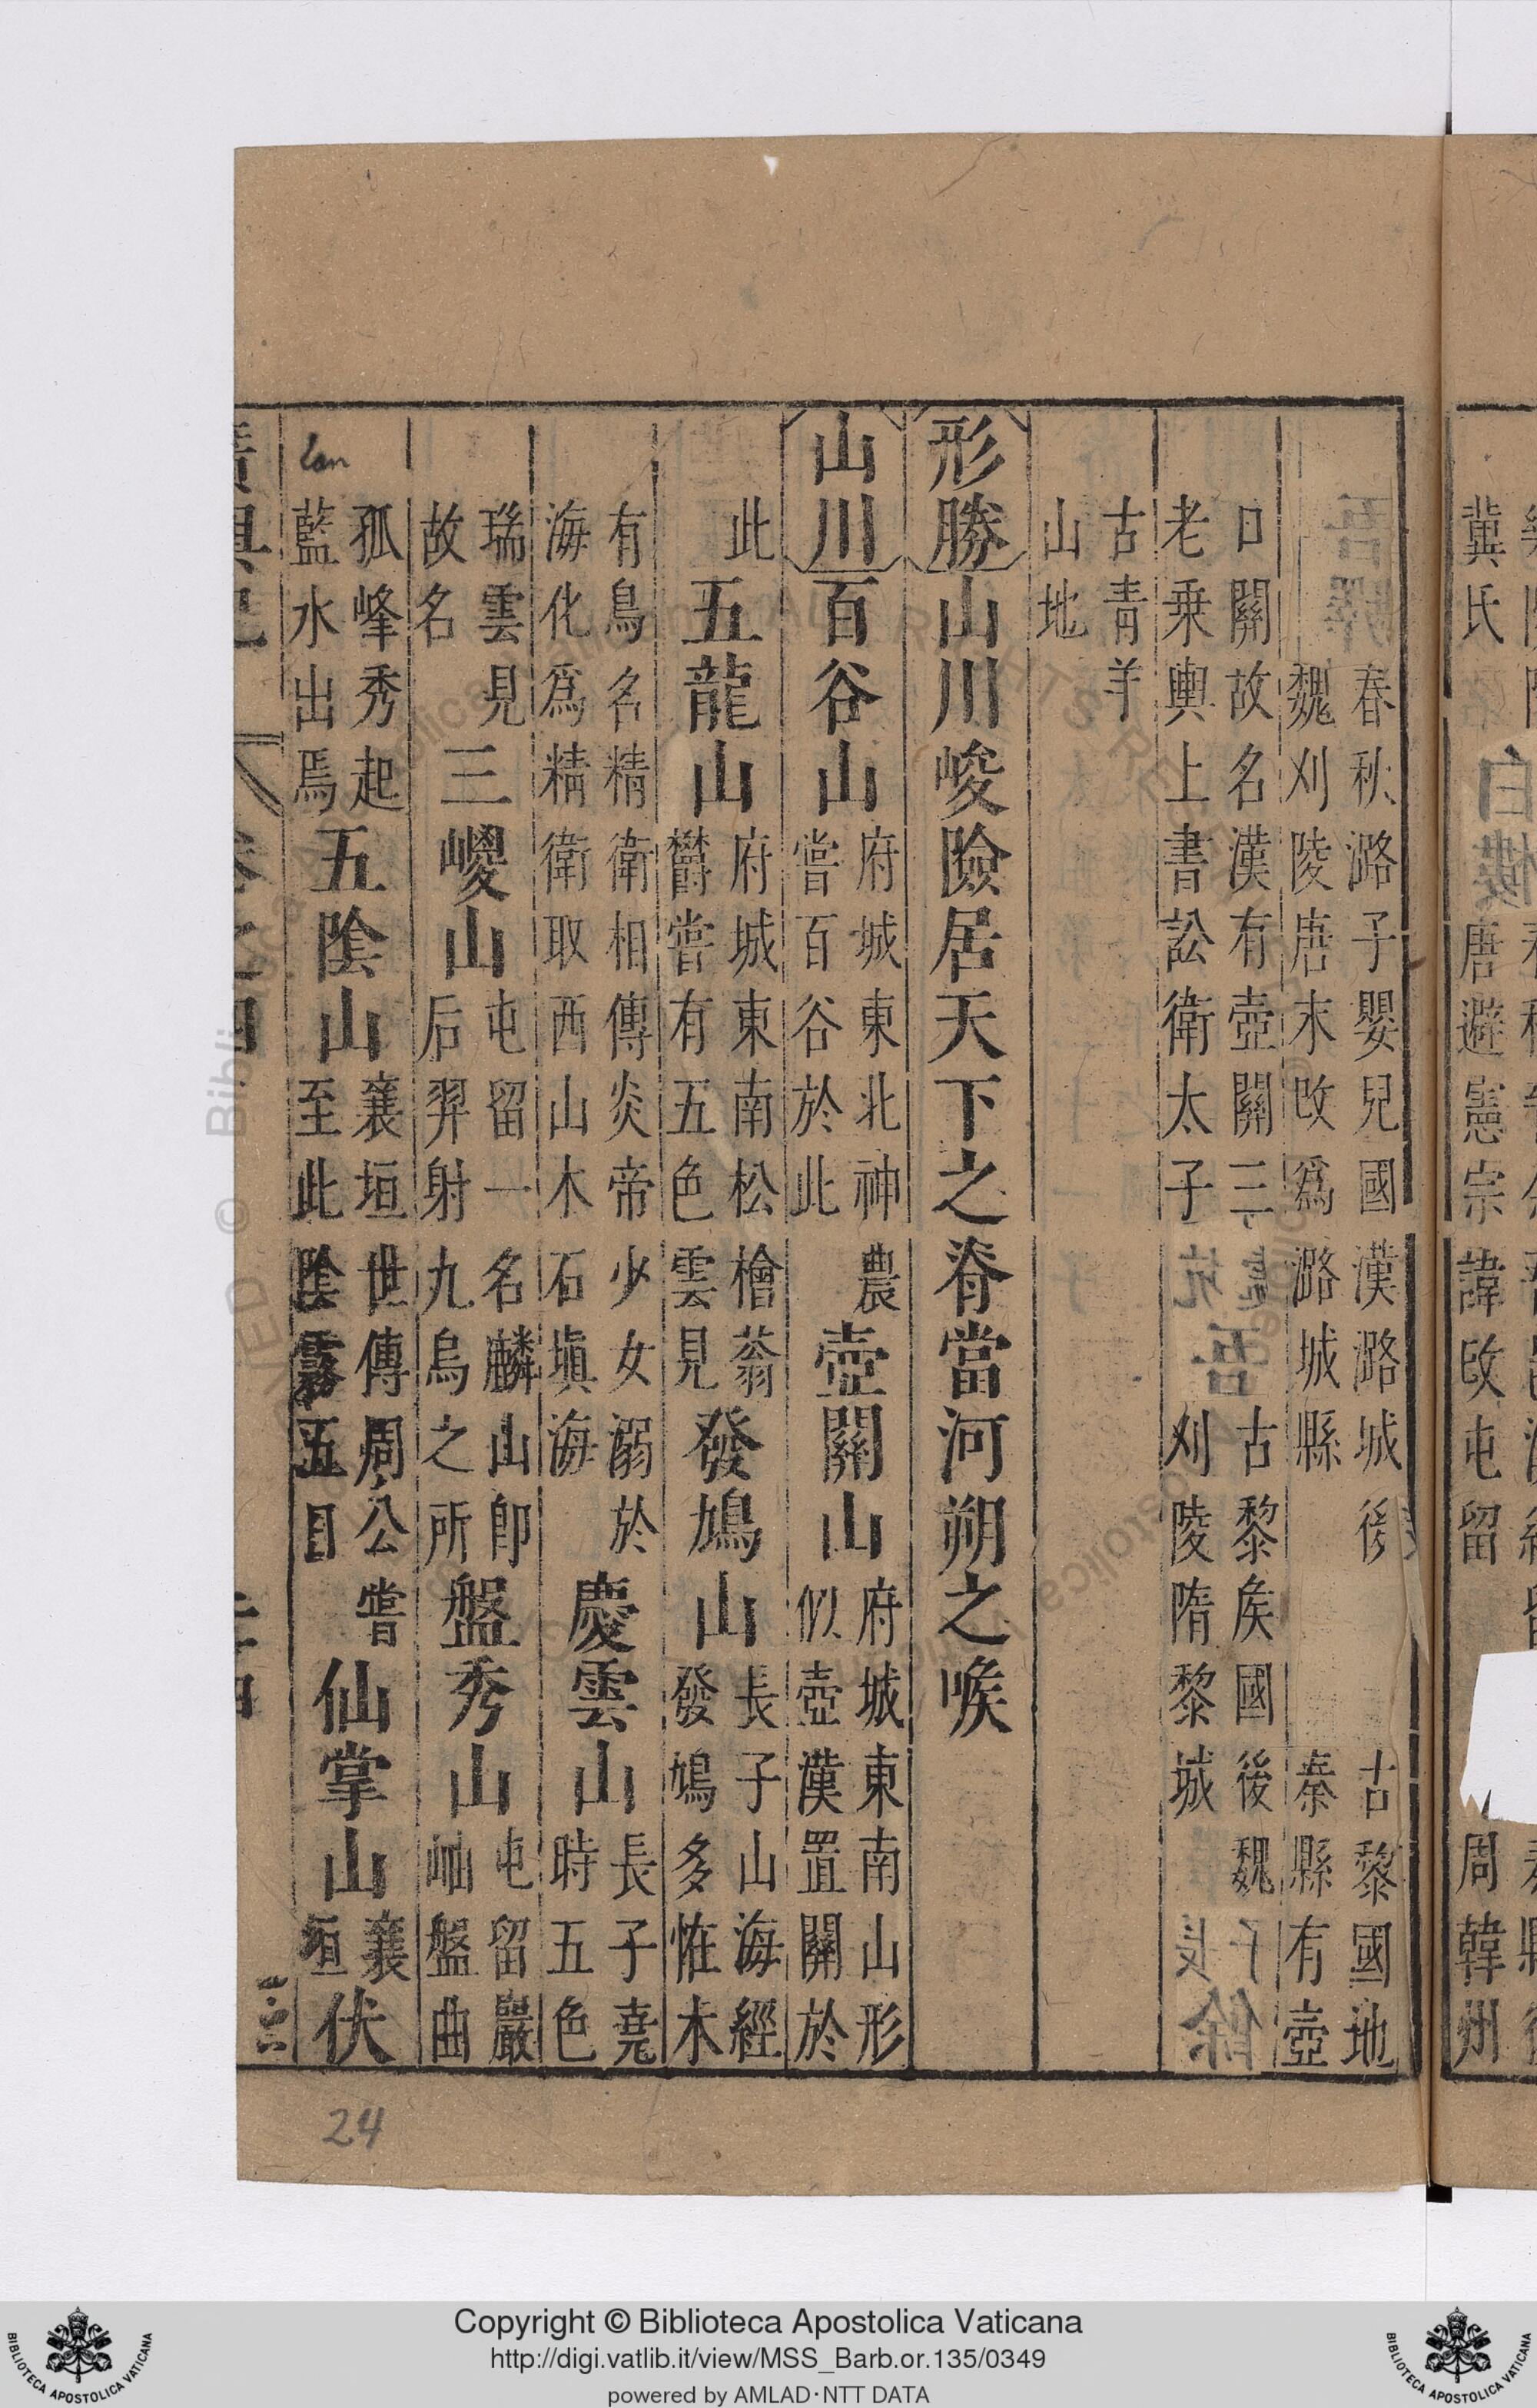 春秋潞子嬰兒國漢潞城後
魏刈陵唐末改爲潞城縣
古黎國地
秦縣有壺
口關故名漢有壺關三
老乗輿上書訟衛太子
古黎矦國後魏
刈陵隋黎城
古青羊
山地
形勝山川峻險居天下之脊當河朔之喉
山川百谷山府城東北神農
嘗百谷於此
壺關山府城東南山形
似壺漢置關於
此五龍山府城東南松檜蓊
欝嘗有五色雲見
發鳩山長子山海經
發鳩多怪木
有鳥名精衛相傳炎帝少女溺於
海化爲精衛取西山木石塡海
慶雲山長子堯
時五色
瑞雲見
故名
三嵕山屯留一名麟山卽
后羿射九烏之所
盤秀山屯留巖
岫盤曲
孤峰秀起
藍水出焉
五陰山襄垣世傳周公嘗
至此陰霧五日
仙掌山襄
垣
伏
lan
24
冀氏
唐避憲宗諱改屯留
周韓州
Copyright © Biblioteca Apostolica Vaticana
http://digi.vatlib.it/view/MSS_Barb.or.135/0349
powered by AMLAD·NTT DATA
BIBLIOTECA APOSTOLICA VATICANA
BIBLIOTECA APOSTOLICA VATICANA